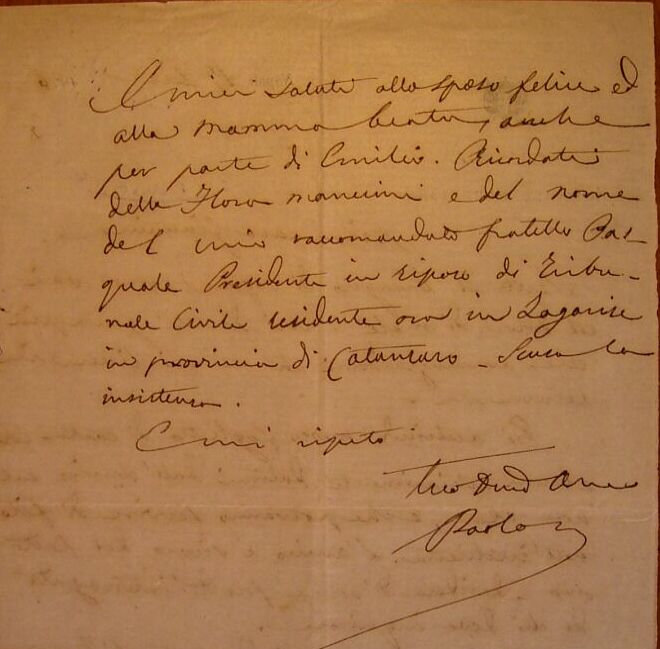 I miei saluti allo sposo felice ed
alla mamma beata, anche
per parte di Emilio. Ricordati
della Flora mancini e del nome
del mio raccomandato fratello Pas-
quale Presidente in riposo di Tribu-
nale Civile residente ora in Zagarise
in provincia di Catanzaro - Scusa la
insistenza.
E mi ripeto
Tuo
Paolo